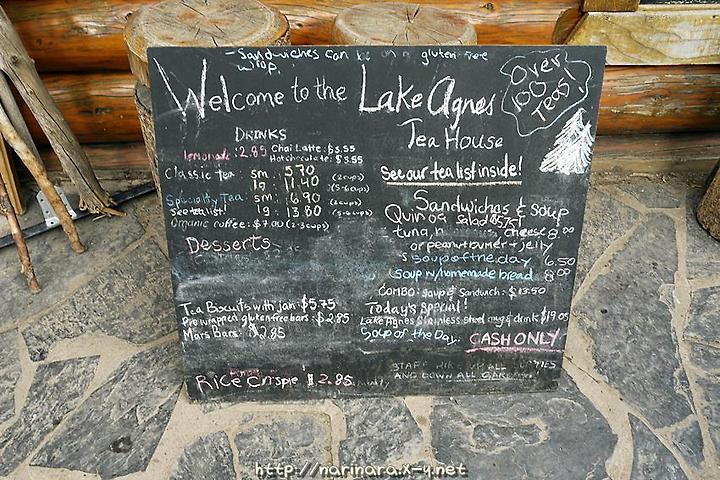 - Sandwiches can be on a gluten free
wrap.
Welcome to the Lake Agnes
Tea House
Over
100
Teas!
DRINKS
lemonade: 2.85 Chai Latte: $3.55
Hot chocolate: $3.55
Classic tea: sm: 5.70 (2 cups)
lg: 11.40 (5-6 cups)
Specialty Tea: sm: 6.90 (2 cups)
See tea list! lg: 13.80 (5-6 cups)
Organic coffee: $7.00 (2-3 cups)
Desserts
Tea Biscuits with jam: $5.75
Pre wrapped gluten free bars: $2.85
Mars bars: $2.85
Rice Crispie $2.85
See our tea list inside!
Sandwiches & soup
Quinoa salad $5.75
tuna, cheese 8.00
or peanut butter + jelly
soup of the day 6.50
soup w/ homemade bread 8.00
COMBO: soup & Sandwich: $13.50
Today's special!
Lake Agnes stainless steel mug & drink $19.05
Soup of the Day.
CASH ONLY
STAFF HIKE ALL
AND DOWN ALL GARBAGE
http://narinara.x-y.net